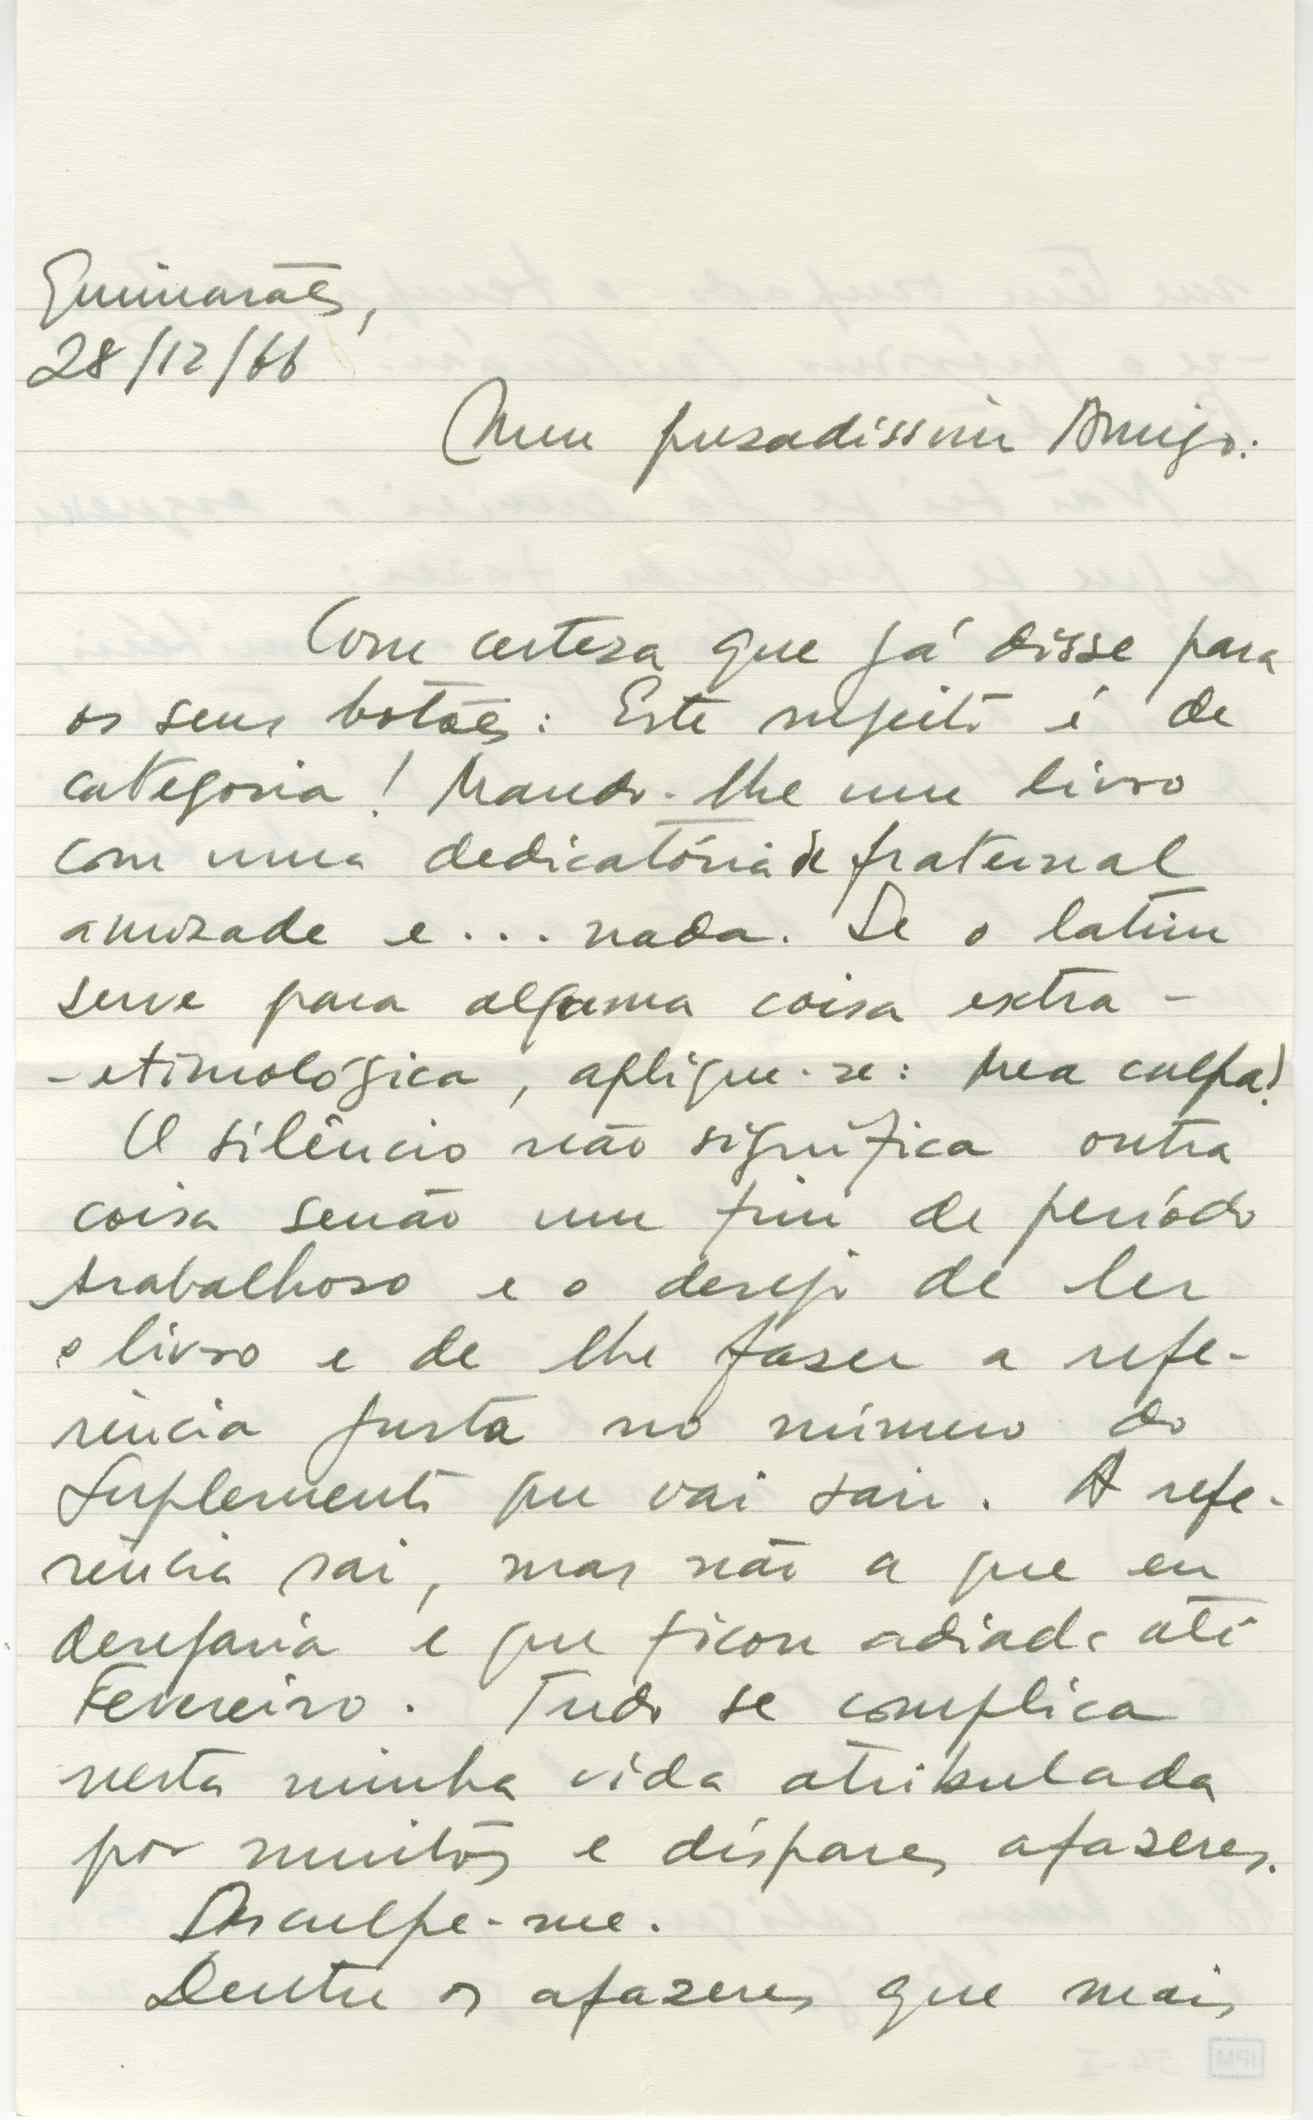 Guimarães,
28/12/66
Meu prezadíssimo Amigo:
Com certeza que já disse para
os seus botões: Este sujeito é de
categoria! Mando-lhe um livro
com uma dedicatória de fraternal
amizade e... nada. Se o latim
serve para alguma coisa extra-
-etimológica, aplique-se: Mea culpa!
O silêncio não significa outra
coisa senão um fim de período
trabalhoso e o desejo de ler
o livro e de lhe fazer a refe-
rência justa no número do
Suplemento que vai sair. A refe-
rência sai, mas não a que eu
desejaria e que ficou adiada até
Fevereiro. Tudo se complica
nesta minha vida atribulada
por muitos e díspares afazeres.
Desculpe-me.
Dentre os afazeres que mais